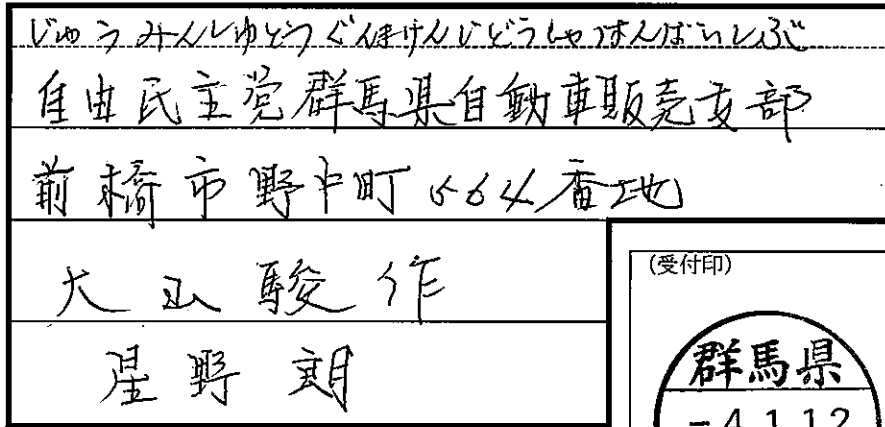 じゆうみんしゆとうぐんまけんじどうしやはんばいしぶ
自由民主党群馬県自動車販売支部
前橋市野中町564番地
大山駿作
星野朗
(受付印)
群馬県
-4.1.12